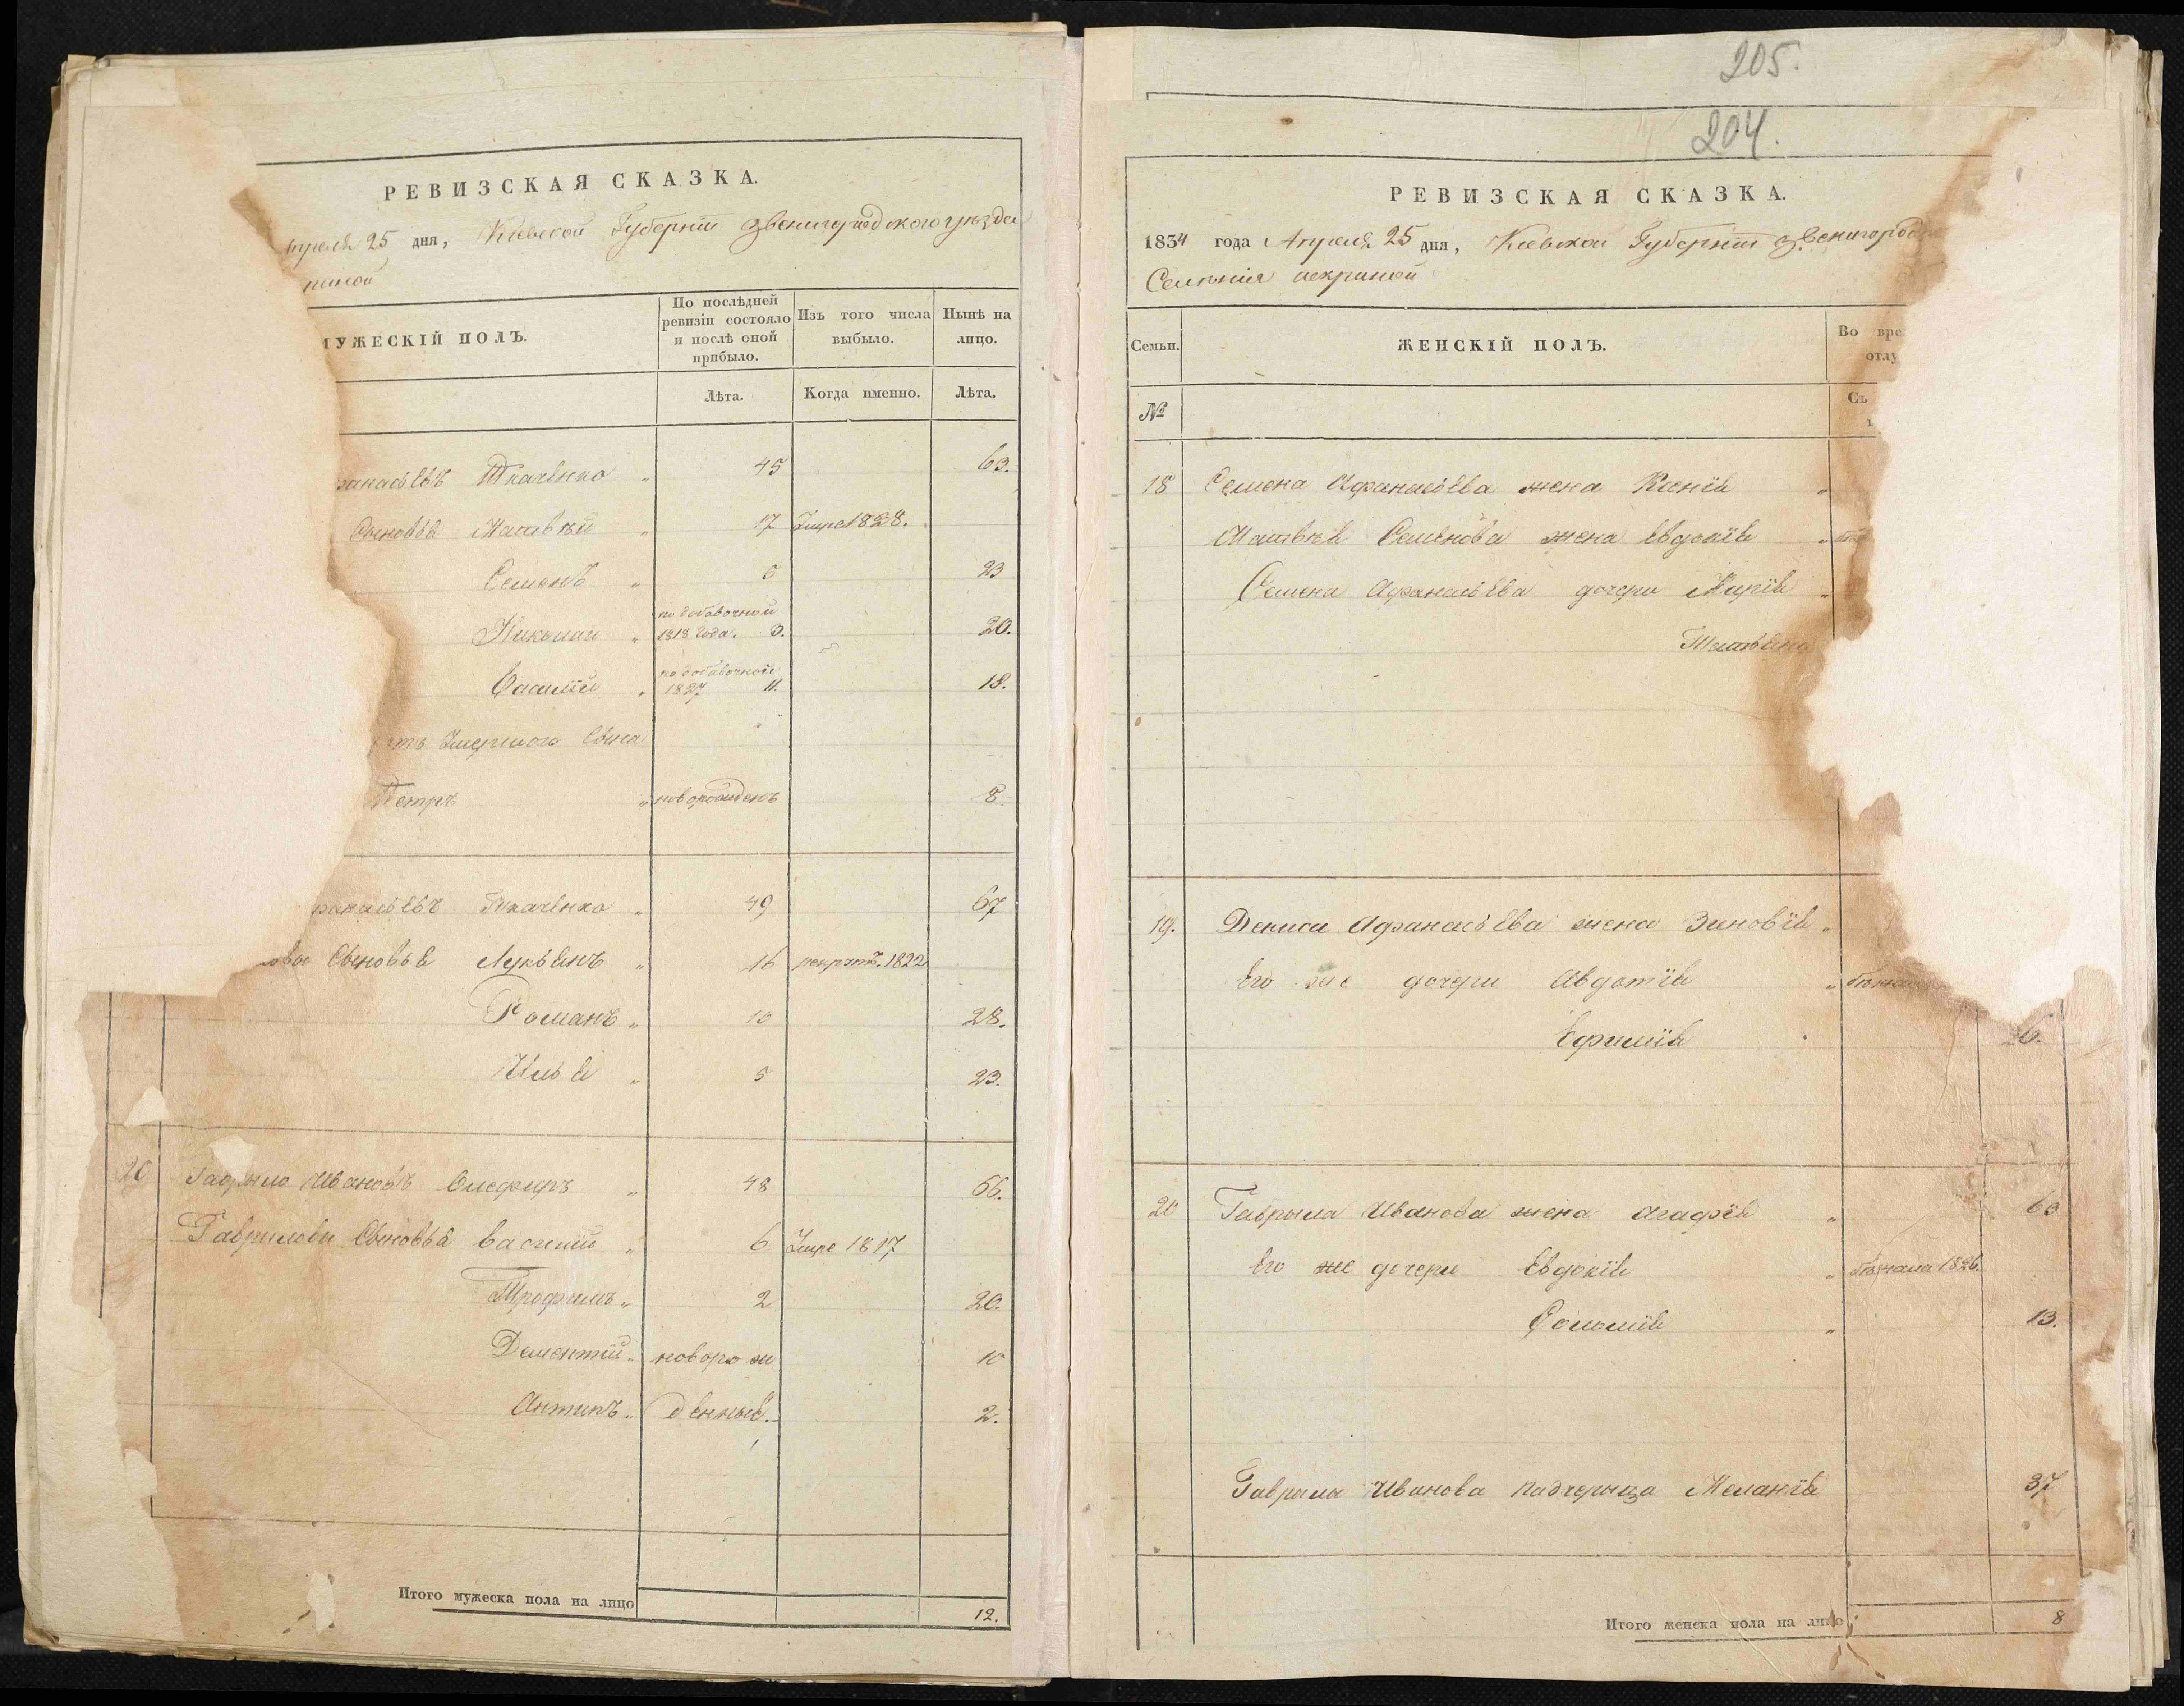 РЕВИЗСКАЯ СКАЗКА.
25 дня, Киевской Губерніи Звенигородского уезда
МУЖЕСКІЙ ПОЛЪ.
По послѣдней ревизіи состояло и послѣ оной прибыло.
Изъ того числа выбыло.
Нынѣ на лицо.
Лѣта.
Когда именно.
Лѣта.
Ткаченко „ 45 63.
Сыновья Матвѣй „ 17 Умре 1828.
Семенъ „ 5 23
по добавочной
Николай „ 1818 года. 3. 20.
по добавочной
Василій „ 1827 11. 18.
Умершого Сына
Петръ „ новорожденъ 8
Ткаченко „ 49 67
Сыновья Лукьянъ „ 16 рекрутъ. 1822
Романъ „ 10 28.
Илья „ 5 23.
20 Гаврыло Ивановъ „ 48 66.
Гавриловы Сыновья Василий „ 6 Умре 1817
Трофимъ „ 2 20.
Дементій „ новорож 10
Антипъ „ денные. 2.
Итого мужеска пола на лицо 12.
205.
204.
РЕВИЗСКАЯ СКАЗКА.
1834 года Апреля 25 дня, Киевской Губерніи
Селенія
Семьи.
ЖЕНСКІЙ ПОЛЪ.
Во вре
отлу
№
Съ
18 Семена Афанасьева жена Ксенія „
Матвѣя Семенова жена Евдокія „
Семена Афанасьева дочери Марія „
Татьяна
19. Дениса Афанасьева жена Зиновія „
Его же дочери Авдотія „
Ефимія 6.
20 Гаврыла Иванова жена Агафія „ 60
Его же дочери Евдокія „ бежала 1826.
Соломія „ 13.
Гаврыла Иванова падчерица Меланія 37
Итого женска пола на лицо 8